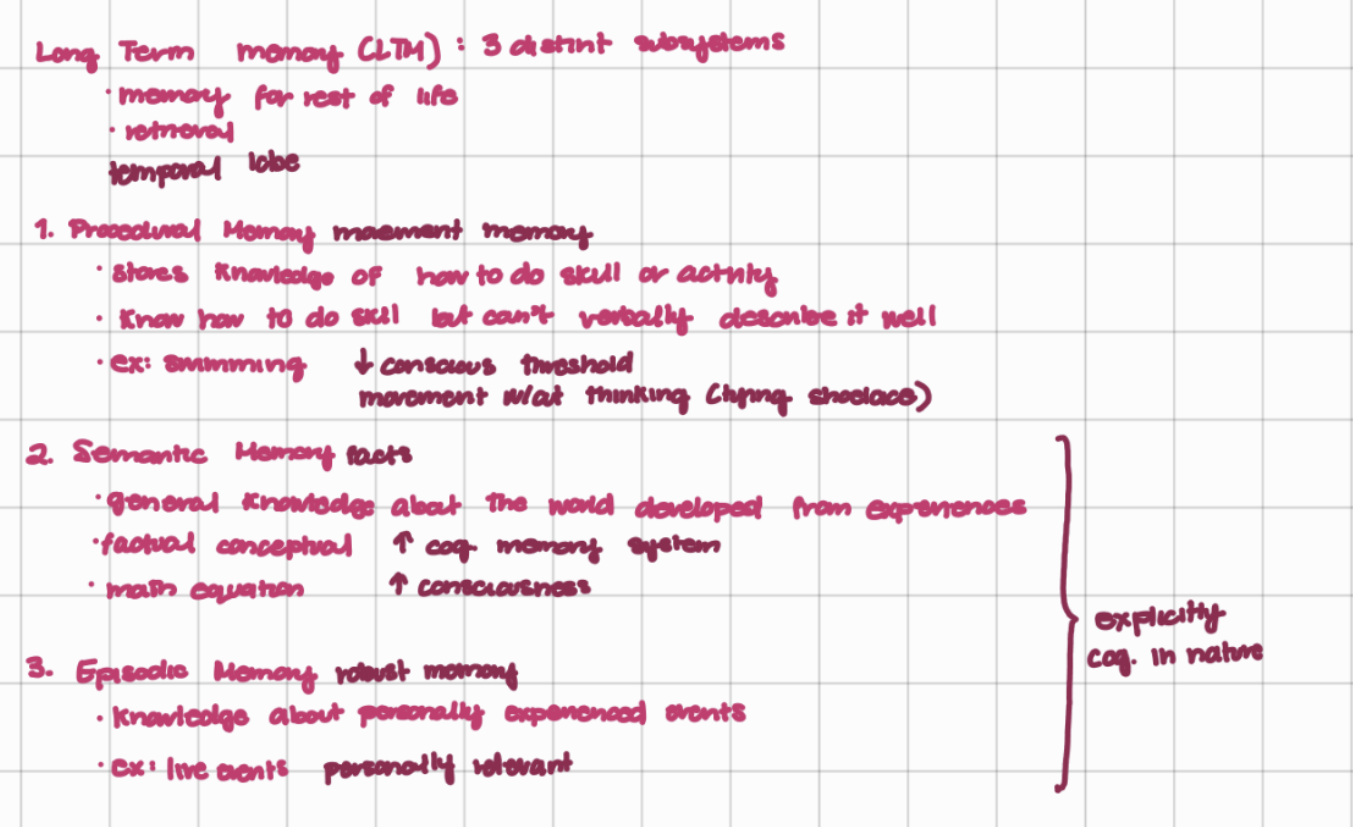 Long Term memory (LTM) : 3 distint subsystems
· memory for rest of life
· retrieval
temporal lobe
1. Procedural Memory movement memory
· stores knowledge of how to do skill or activity
· know how to do skill but can't verbally describe it well
· ex: swimming ↓ conscious threshold
movement w/out thinking (tying shoelace)
2. Semantic Memory facts
· general knowledge about the world developed from experiences
· factual conceptual ↑ cog. memory system
· main equation ↑ consciousness
3. Episodic Memory robust memory
· knowledge about personally experienced events
· ex: live events personally relevant
explicitly
cog. in nature